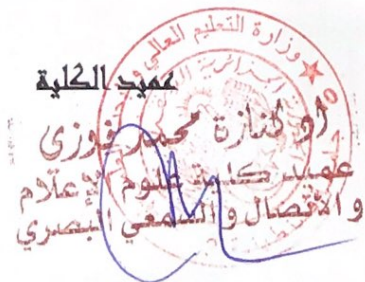 وزارة التعليم العالي و
الجزائرية
عميد الكلية
محمد فوزي
عميد كلية علوم الإعلام
و الاتصال و السمعي البصري